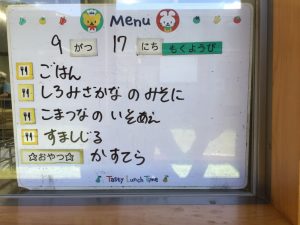 Menu
9 がつ 17 にち もくようび
ごはん
しろみざかなのみそに
こまつなのいそあえ
すましじる
☆おやつ☆ かすてら
Tasty Lunch Time